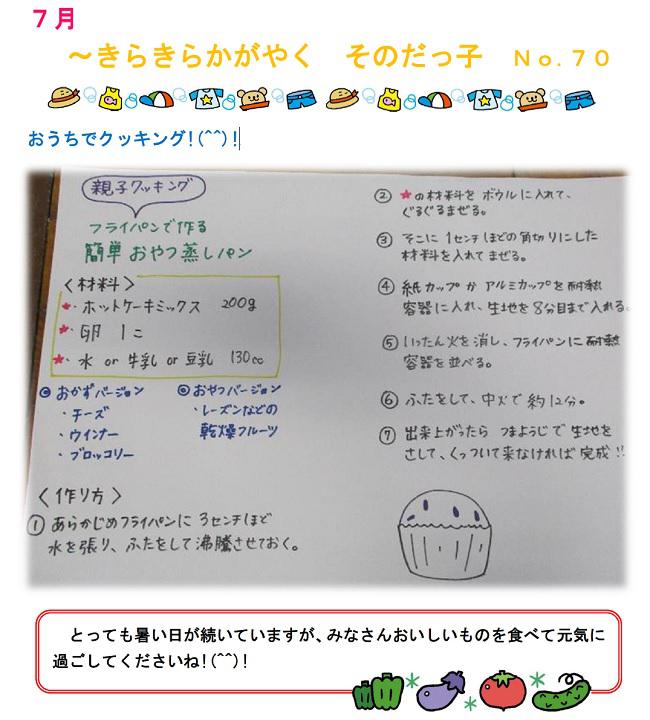 7月
～きらきらかがやく そのだっ子 No.70
おうちでクッキング!(^^)!
親子クッキング
フライパンで作る
簡単 おやつ蒸しパン
〈材料〉
★・ホットケーキミックス 200g
★・卵 1こ
★・水 or 牛乳 or 豆乳 130cc
◎おかずバージョン
・チーズ
・ウインナー
・ブロッコリー
◎おやつバージョン
・レーズンなどの
乾燥フルーツ
〈作り方〉
① あらかじめフライパンに 3センチほど
水を張り、ふたをして沸騰させておく。
② ★の材料を ボウルに入れて、
ぐるぐるまぜる。
③ そこに 1センチほどの角切りにした
材料を入れてまぜる。
④ 紙カップか アルミカップを耐熱
容器に入れ、生地を8分目まで入れる。
⑤ いったん火を消し、フライパンに耐熱
容器を並べる。
⑥ ふたをして、中火で約12分。
⑦ 出来上がったら つまようじで生地を
さして、くっついて来なければ完成!!
とっても暑い日が続いていますが、みなさんおいしいものを食べて元気に
過ごしてくださいね!(^^)!